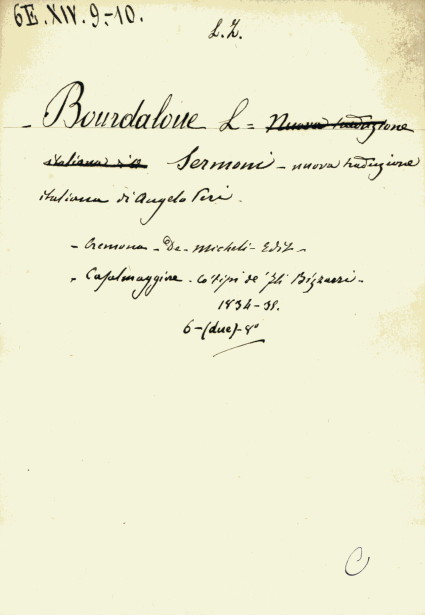 6E.XIV.9-10.
L.Z.
- Bourdaloue L = Nuova traduzione
italiana di A Sermoni - nuova traduzione
italiana di Angelo Peri.
- Cremona - De-Micheli - Edit -
- Casalmaggiore - Co tipi de' fli Bizzarri -
1834-38.
6-(due)-8°
C